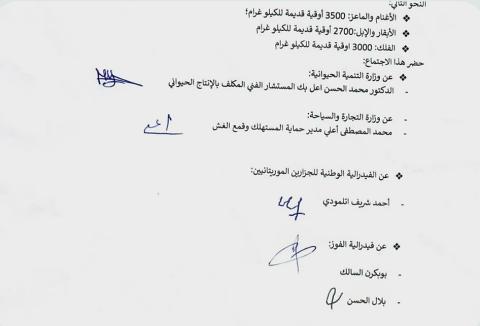 النحو التالي:
❖ الأغنام والماعز: 3500 أوقية قديمة للكيلو غرام؛
❖ الأبقار والإبل:2700 أوقية قديمة للكيلو غرام
❖ الفلك: 3000 اوقية قديمة للكيلو غرام
حضر هذا الاجتماع:
❖ عن وزارة التنمية الحيوانية:
- الدكتور محمد الحسن اعل بك المستشار الفني المكلف بالإنتاج الحيواني
- عن وزارة التجارة والسياحة:
- محمد المصطفى أعلي مدير حماية المستهلك وقمع الغش
❖ عن الفيدرالية الوطنية للجزارين الموريتانيين:
- أحمد شريف اتلمودي
❖ عن فيدرالية الفوز:
- بوبكرن السالك
- بلال الحسن